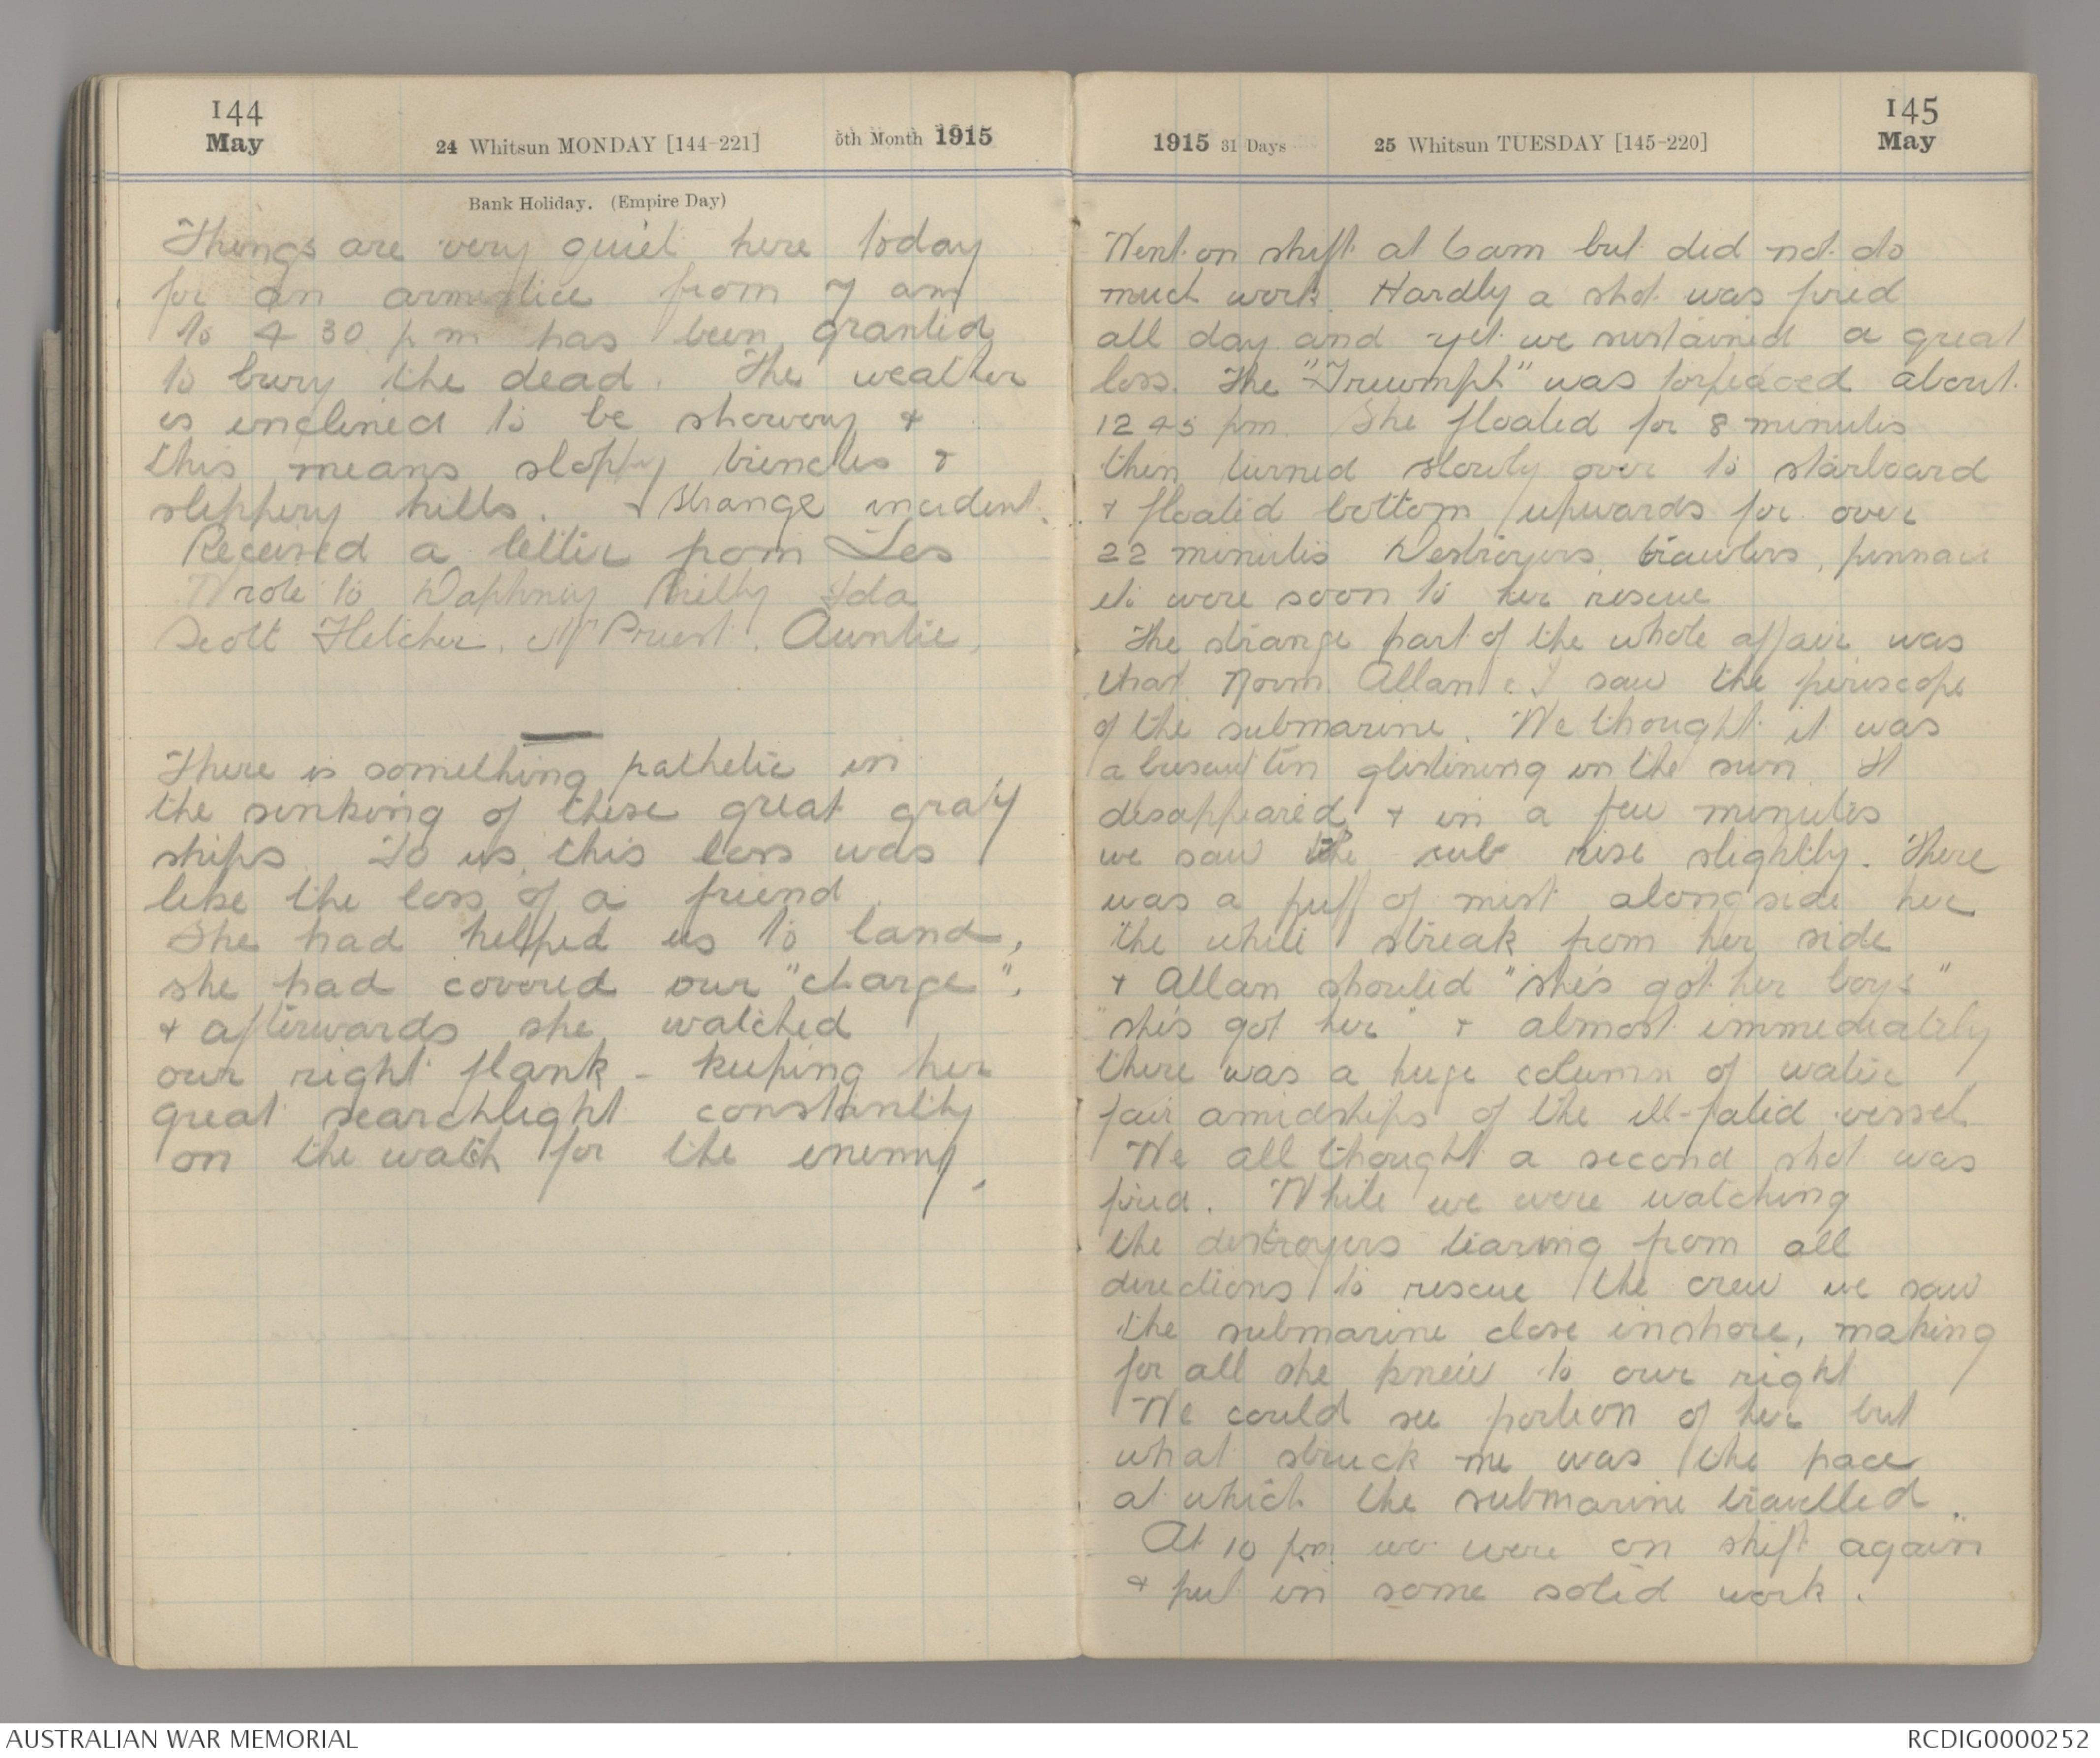 144
May
24 Whitsun MONDAY [144-221]
5th Month 1915
Bank Holiday. (Empire Day)
Things are very quiet here today
for an armistice from 7 am
to 4 30 p m has been granted
to bury the dead. The weather
is inclined to be showery &
this means sloppy trenches &
slippery hills. & strange incident.
Received a letter from Les
Wrote to Daphney Milly Ida
Scott Fletcher, Mr Priest, Auntie,
There is something pathetic in
the sinking of these great gray
ships. To us, this loss was
like the loss of a friend.
She had helped us to land,
she had covered our "charge",
& afterwards she watched
our right flank - keeping her
great searchlight constantly
on the watch for the enemy.
1915 31 Days
25 Whitsun TUESDAY [145-220]
145
May
Went on shift at 6am but did not do
much work. Hardly a shot was fired
all day and yet we sustained a great
loss. The "Triumph" was torpedoed about
12 45 pm. She floated for 8 minutes
then turned slowly over to starboard
& floated bottom upwards for over
22 minutes Destroyers, trawlers, pinnace
etc were soon to her rescue
The strange part of the whole affair was
that Norm Allan & I saw the periscope
of the submarine. We thought it was
a biscuit tin glistening in the sun. It
disappeared & in a few minutes
we saw the sub rise slightly. There
was a puff of mist alongside her
the white streak from her side
& Allan shouted "she's got her boys"
"she's got her" & almost immediately
there was a huge column of water
fair amidships of the ill-fated vessel
We all thought a second shot was
fired. While we were watching
the destroyers tearing from all
directions to rescue the crew we saw
the submarine close inshore, making
for all she knew to our right
We could see portion of her but
what struck me was the pace
at which the submarine travelled.
At 10 pm we were on shift again
& put in some solid work.
AUSTRALIAN WAR MEMORIAL
RCDIG0000252